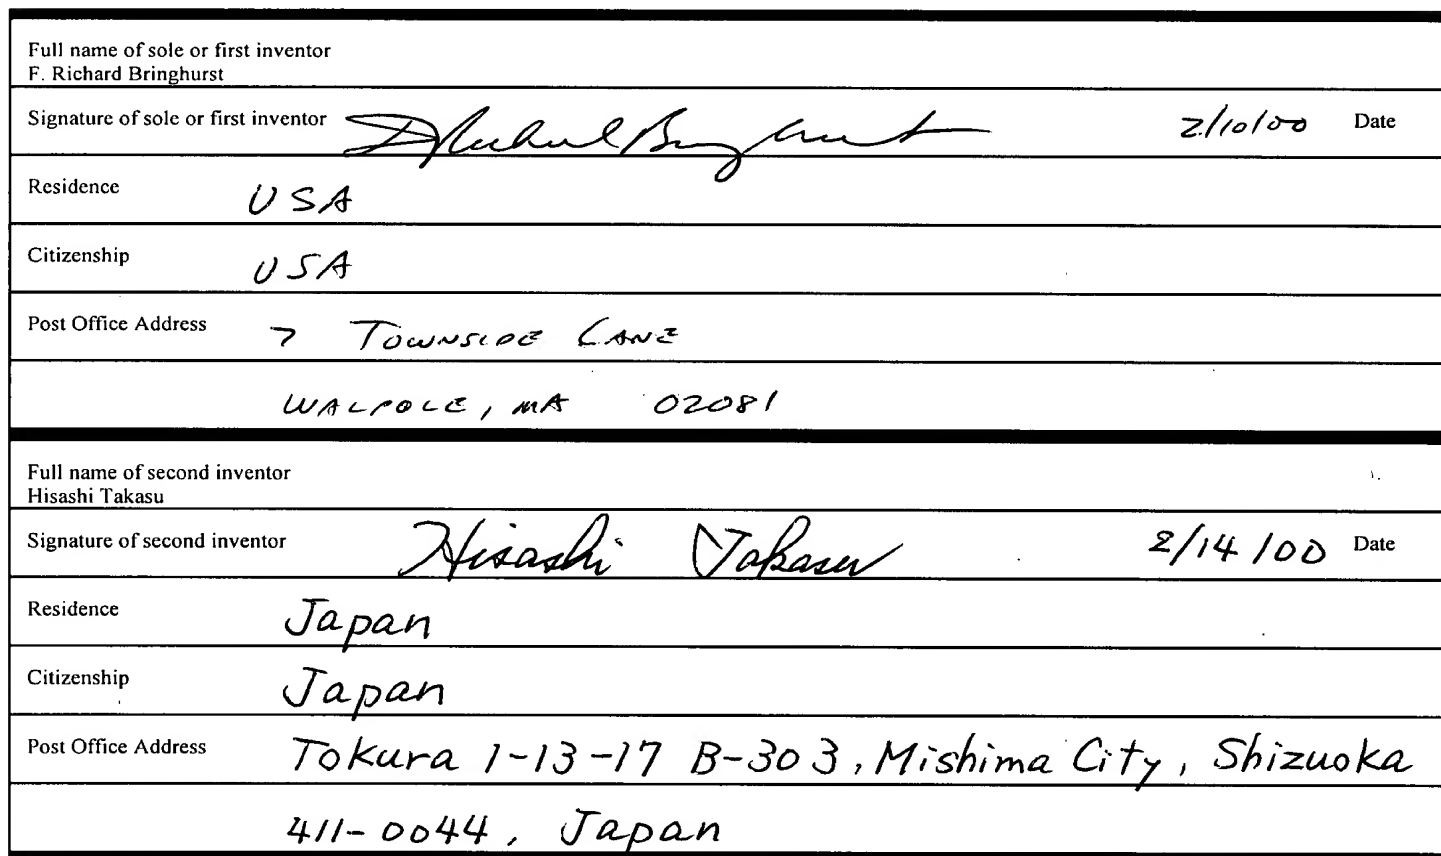 Full name of sole or first inventor
F. Richard Bringhurst
Signature of sole or first inventor F Richard Bringhurst 2/10/00 Date
Residence USA
Citizenship USA
Post Office Address 7 TOWNSIDE LANE
WALPOLE, MA 02081
Full name of second inventor
Hisashi Takasu
Signature of second inventor Hisashi Takasu 2/14/00 Date
Residence Japan
Citizenship Japan
Post Office Address Tokura 1-13-17 B-303, Mishima City, Shizuoka
411-0044, Japan